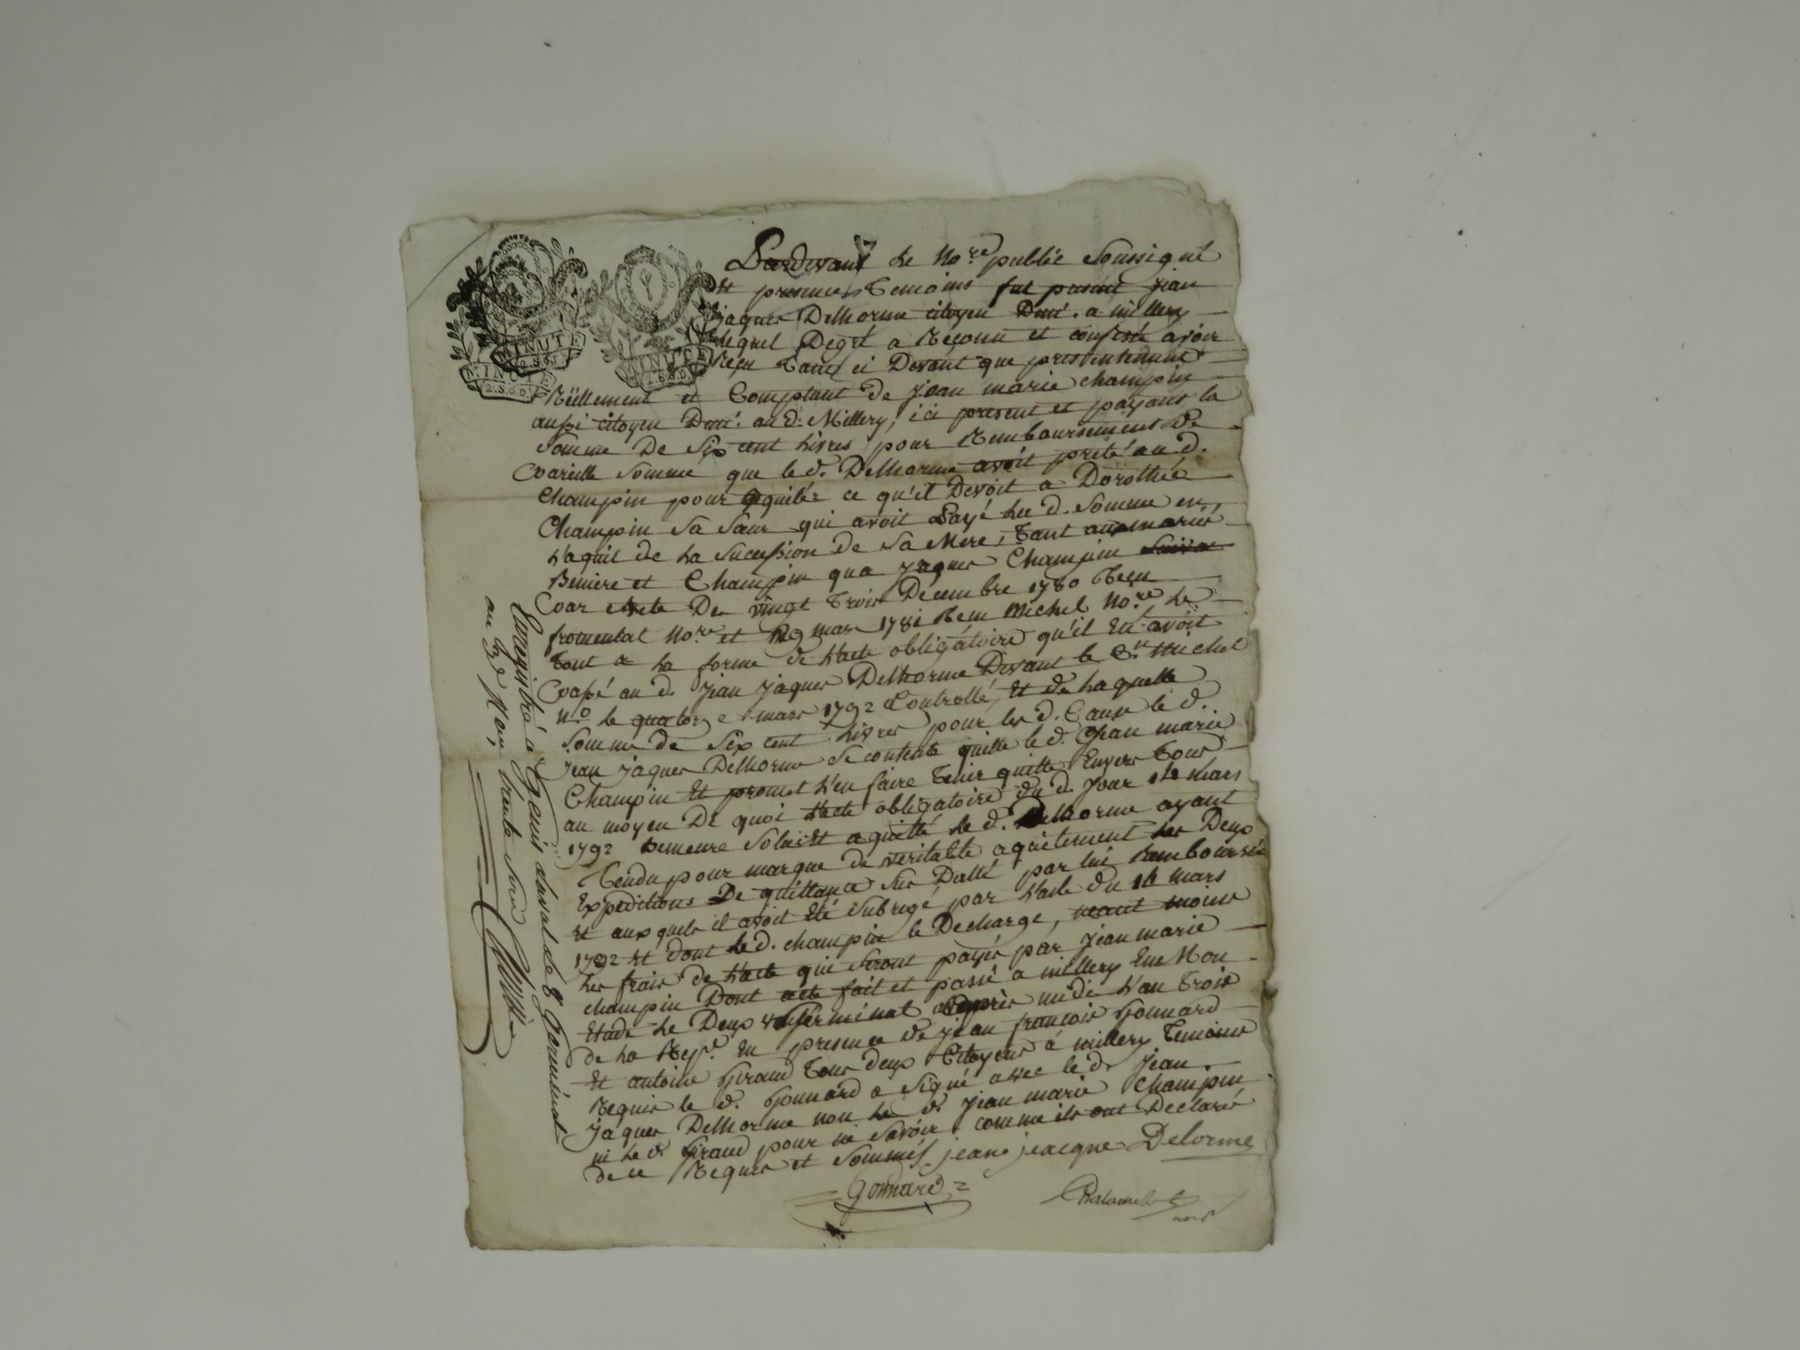 MINUTE
2.S.6.D.
MINUTE
2.S.6.D.
MINUTE
2.S.6.D.
Pardevant Le No.re public Soussigné
Et presences Temoins fut present Jean
Jaques Delhorme citoyen Dmt. a millery
Lequel Degré a Reconnu et confessé avoir
Reçu Tant ci Devant que presentement
Réellement et Comptant de Jean marie champin
aussi citoyen Dmt. au d. Millery, ici present et payant la
Somme De Six cent Livres pour Remboursement de
pareille Somme que le d. Delhorme avoit preté au d.
Champin pour aquiter ce qu'il Devoit a Dorothée
Champin Sa Sœur qui avoit Payé Lad. Somme en
L'aquit de La Sucession de Sa Mere, Tant aux mariés
et Champin qu'a Jaques Champin
par acte Du vingt Trois Decembre 1780 Reçu
fromental No.re et 29 mars 1781 Reçu Michel No.re Le
Tout a La forme de L'acte obligatoire qu'il En avoit
passé au d. Jean Jaques Delhorme Devant le S.r Michel
N.re Le quatorze mars 1792 Controllé, Et de Laquelle
Somme de Six cent Livres pour les d. Cause le d.
Jean Jaques Delhorme Se contente quitte le d. Jean marie
Champin Et promet L'en faire Tenir quitte Envers Tous
au moyen De quoi L'acte obligatoire du d. Jour 14 Mars
1792 Demeure Solu Et aquitté Le d. Delhorme ayant
Rendu pour marque de veritable aquitement Les Deux
Expeditions De quittance Sus Datté par lui Remboursée
Et auxquels il avoit Eté Subrogé par L'acte du 14 mars
1792 Et Dont Le d. champin Le Decharge, neant moins
Les frais De L'acte qui Seront payés par Jean marie
champin Dont acte fait et passé a millery En Mon
Etude Le Deux germinal après midi L'an Trois
de La Rep.e En presence de Jean françois Gonnard
Et antoine Giraud Tous deux Citoyens a millery Temoins
Requis le d. Gonnard a Signé avec le d. Jean
Jaques Delhorme non Le d. Jean marie Champin
ni Le d. Giraud pour ne Savoir comme ils ont Declaré
de ce Requis et Sommés. jean jeacque Delorme
Gonnard
Enregistré à Genis Laval le 8 Germinal
an 3.e Reçu, trente sous